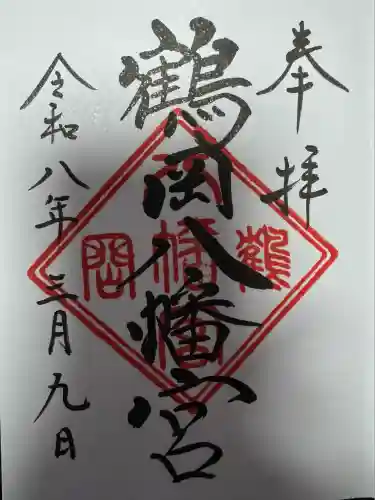 奉拝
鶴岡八幡宮
令和八年三月九日